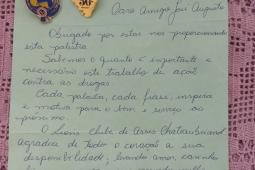 50
Caro Amigo José Augusto
Obrigado por estar nos proporcionando
esta palestra.
Sabemos o quanto é importante e
necessário este trabalho de ação
contra as drogas
Cada palestra, cada frase, inspira e
motiva para o bem e serviço ao
próximo.
O Lions Clube de Assis Chateaubriand
agradece de todo o coração a sua
disponibilidade, levando amor, carinho